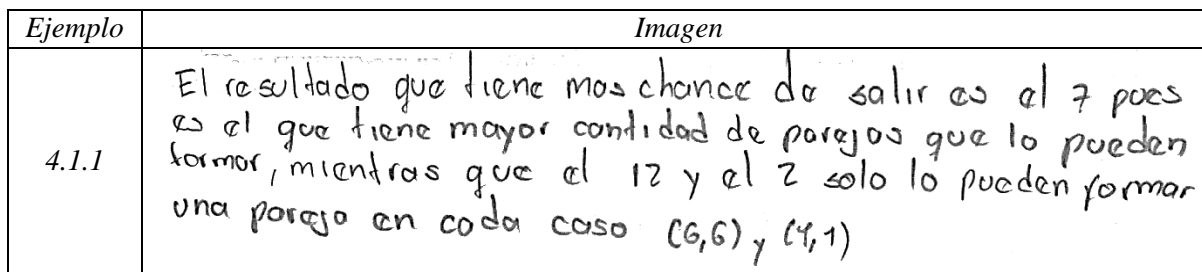 Ejemplo Imagen
4.1.1
El resultado que tiene mas chance de salir es el 7 pues
es el que tiene mayor cantidad de parejas que lo pueden
formar, mientras que el 12 y el 2 solo lo pueden formar
una pareja en cada caso (6,6) y (1,1)